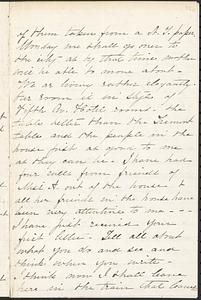 of them taken from a N.Y. paper
Monday we shall go over to
the city - at by that time mother
will be able to move about -
We are living rather elegantly
Our room is in style of
Fifth Av. Hotel rooms - the
table better than the Tremont
table and the people in the
house just as good to me
as they can be - I have had
four calls from friends of
Miss A. out of the house &
all her friends in the house have
been very attentive to me - - -
I have just received your
first letter - Tell all about
what you do and see and
think when you write -
I think now I shall leave
here in the train that leaves